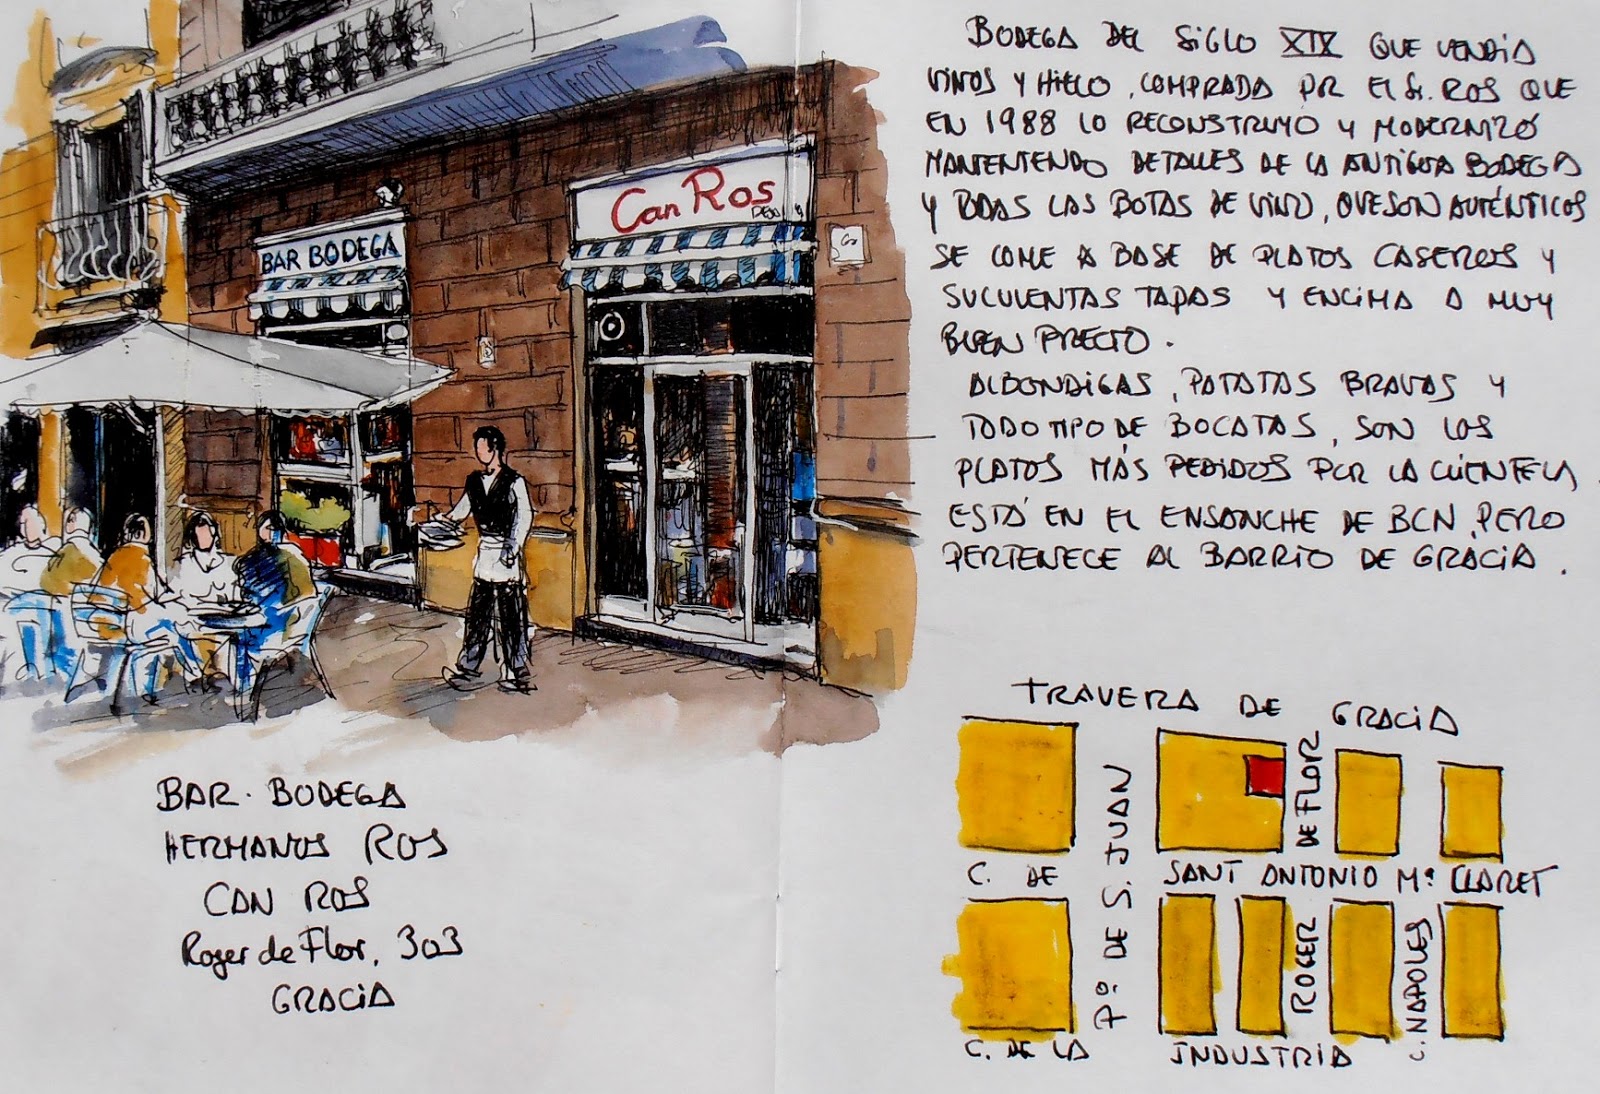 BAR BODEGA
Can Ros
BAR · BODEGA
HERMANOS ROS
CAN ROS
Roger de Flor, 303
GRACIA
BODEGA DEL SIGLO XIX QUE VENDIA
VINOS Y HIELO, COMPRADA POR EL Sr. ROS QUE
EN 1988 LO RECONSTRUYO Y MODERNIZÓ
MANTENIENDO DETALLES DE LA ANTIGUA BODEGA
Y TODAS LAS BOTAS DE VINO, QUE SON AUTÉNTICOS
SE COME A BASE DE PLATOS CASEROS Y
SUCULENTAS TAPAS Y ENCIMA A MUY
BUEN PRECIO.
ALBONDIGAS, PATATAS BRAVAS Y
TODO TIPO DE BOCATAS, SON LOS
PLATOS MÁS PEDIDOS POR LA CLIENTELA
ESTÁ EN EL ENSANCHE DE BCN, PERO
PERTENECE AL BARRIO DE GRACIA.
TRAVERA DE GRACIA
Pº DE S. JUAN
ROGER DE FLOR
C. DE SANT ANTONIO Mª CLARET
C. NAPOLES
C. DE LA INDUSTRIA